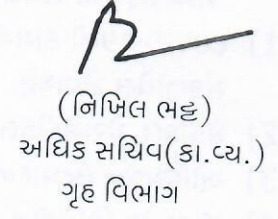 (નિખિલ ભટ્ટ)
અધિક સચિવ(કા.વ્ય.)
ગૃહ વિભાગ